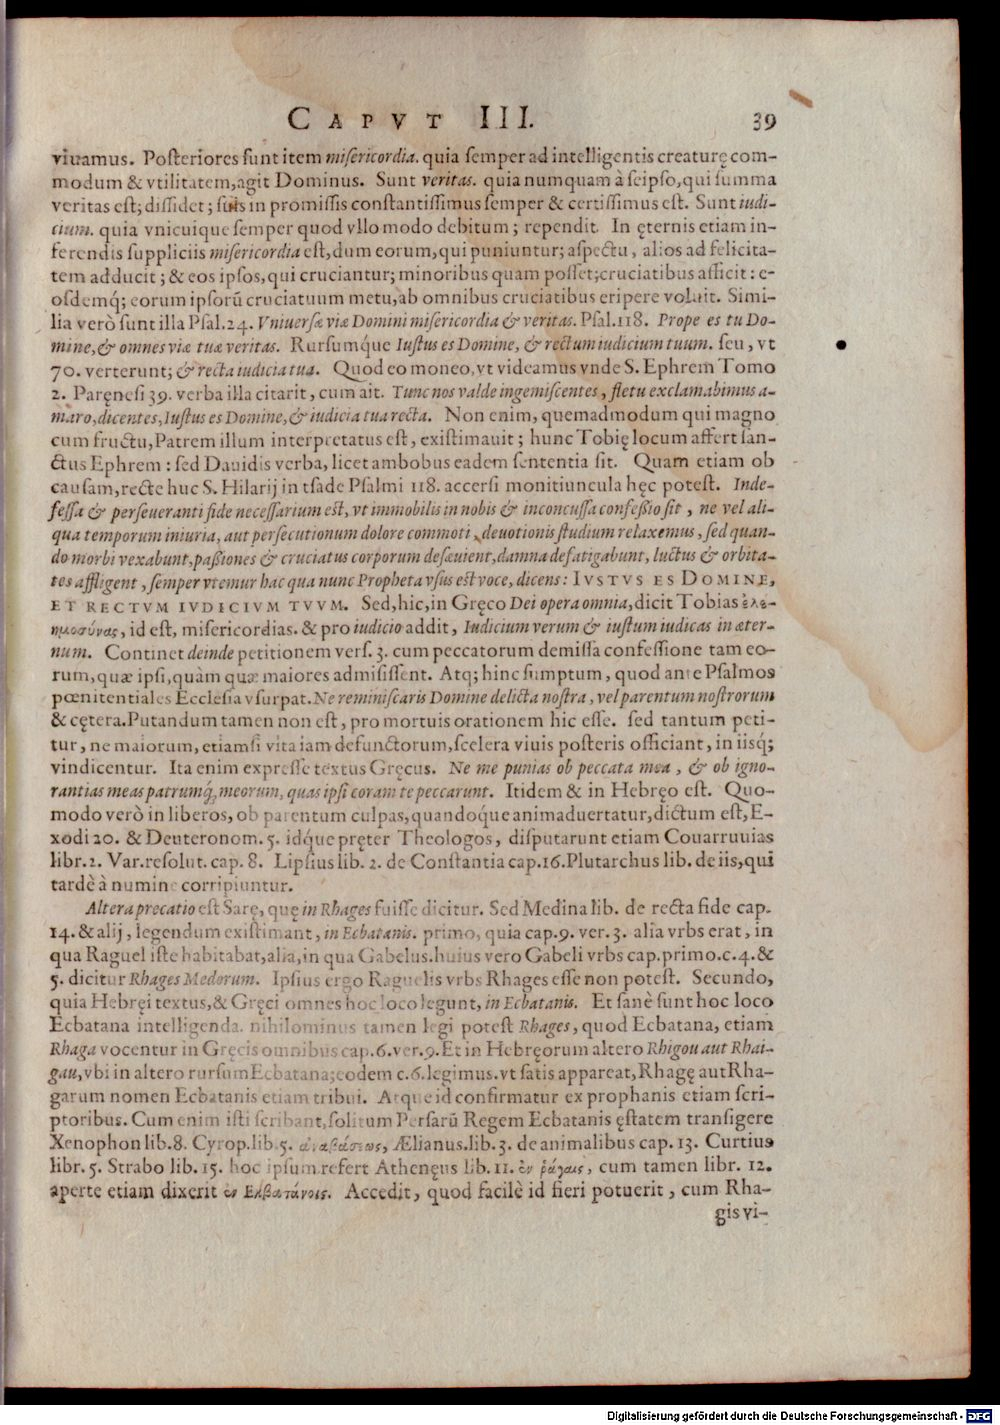 CAPVT III. 39
viuamus. Posteriores sunt item misericordia. quia semper ad intelligentis creaturę com-
modum & vtilitatem, agit Dominus. Sunt veritas. quia numquam à seipso, qui summa
veritas est; dissidet; suis in promissis constantissimus semper & certissimus est. Sunt iudi-
cium. quia vnicuique semper quod vllo modo debitum; rependit. In ęternis etiam in-
ferendis suppliciis misericordia est, dum eorum, qui puniuntur; aspectu, alios ad felicita-
tem adducit; & eos ipsos, qui cruciantur; minoribus quam posset; cruciatibus afficit: e-
osdemq́; eorum ipsorū cruciatuum metu, ab omnibus cruciatibus eripere voluit. Simi-
lia verò sunt illa Psal. 24. Vniuersæ viæ Domini misericordia & veritas. Psal. 118. Prope es tu Do-
mine, & omnes viæ tuæ veritas. Rursumq́ue Iustus es Domine, & rectum iudicium tuum. seu, vt
70. verterunt; & recta iudicia tua. Quod eo moneo, vt videamus vnde S. Ephrem Tomo
2. Paręnesi 39. verba illa citarit, cum ait. Tunc nos valde ingemiscentes, fletu exclamabimus a-
maro, dicentes, Iustus es Domine, & iudicia tua recta. Non enim, quemadmodum qui magno
cum fructu, Patrem illum interpretatus est, existimauit; hunc Tobię locum affert san-
ctus Ephrem: sed Dauidis verba, licet ambobus eadem sententia sit. Quam etiam ob
causam, recte huc S. Hilarij in tsade Psalmi 118. accersi monitiuncula hęc potest. Inde-
fessa & perseueranti fide necessarium est, vt immobilis in nobis & inconcussa confessio sit, ne vel ali-
qua temporum iniuria, aut persecutionum dolore commoti, deuotionis studium relaxemus, sed quan-
do morbi vexabunt, passiones & cruciatus corporum desæuient, damna defatigabunt, luctus & orbita-
tes affligent, semper vtemur hac qua nunc Propheta vsus est voce, dicens: IVSTVS ES DOMINE,
ET RECTVM IVDICIVM TVVM. Sed, hic, in Gręco Dei opera omnia, dicit Tobias ἐλε-
ημοσύνας, id est, misericordias. & pro iudicio addit, Iudicium verum & iustum iudicas in æter-
num. Continet deinde petitionem vers. 3. cum peccatorum demissa confessione tam eo-
rum, quæ ipsi, quàm quæ maiores admisissent. Atq; hinc sumptum, quod ante Psalmos
pœnitentiales Ecclesia vsurpat. Ne reminiscaris Domine delicta nostra, vel parentum nostrorum
& cętera. Putandum tamen non est, pro mortuis orationem hic esse. sed tantum peti-
tur, ne maiorum, etiamsi vita iam defunctorum, scelera viuis posteris officiant, in iisq́;
vindicentur. Ita enim expresse textus Gręcus. Ne me punias ob peccata mea, & ob igno-
rantias meas patrumq́, meorum, quas ipsi coram te peccarunt. Itidem & in Hebręo est. Quo-
modo verò in liberos, ob parentum culpas, quandoque animaduertatur, dictum est, E-
xodi 20. & Deuteronom. 5. idq́ue pręter Theologos, disputarunt etiam Couarruuias
libr. 2. Var. resolut. cap. 8. Lipsius lib. 2. de Constantia cap. 16. Plutarchus lib. de iis, qui
tardè à numine corripiuntur.
Altera precatio est Sarę, quę in Rhages fuisse dicitur. Sed Medina lib. de recta fide cap.
14. & alij, legendum existimant, in Ecbatanis. primo, quia cap. 9. ver. 3. alia vrbs erat, in
qua Raguel iste habitabat, alia, in qua Gabelus. huius vero Gabeli vrbs cap. primo. c. 4. &
5. dicitur Rhages Medorum. Ipsius ergo Raguelis vrbs Rhages esse non potest. Secundo,
quia Hebręi textus, & Gręci omnes hoc loco legunt, in Ecbatanis. Et sanè sunt hoc loco
Ecbatana intelligenda. nihilominus tamen legi potest Rhages, quod Ecbatana, etiam
Rhaga vocentur in Gręcis omnibus cap. 6. ver. 9. Et in Hebręorum altero Rhigou aut Rhai-
gau, vbi in altero rursum Ecbatana; eodem c. 6. legimus. vt satis appareat, Rhagę aut Rha-
garum nomen Ecbatanis etiam tribui. Atque id confirmatur ex prophanis etiam scri-
ptoribus. Cum enim isti scribant, solitum Persarū Regem Ecbatanis ęstatem transigere
Xenophon lib. 8. Cyrop. lib. 5. ἀναβάσεως, Ælianus. lib. 3. de animalibus cap. 13. Curtius
libr. 5. Strabo lib. 15. hoc ipsum refert Athenęus lib. 11. ἐν ῥάγαις, cum tamen libr. 12.
aperte etiam dixerit ἐν Ἐκβατάνοις. Accedit, quod facilè id fieri potuerit, cum Rha-
gis vi-
Digitalisierung gefördert durch die Deutsche Forschungsgemeinschaft - DFG